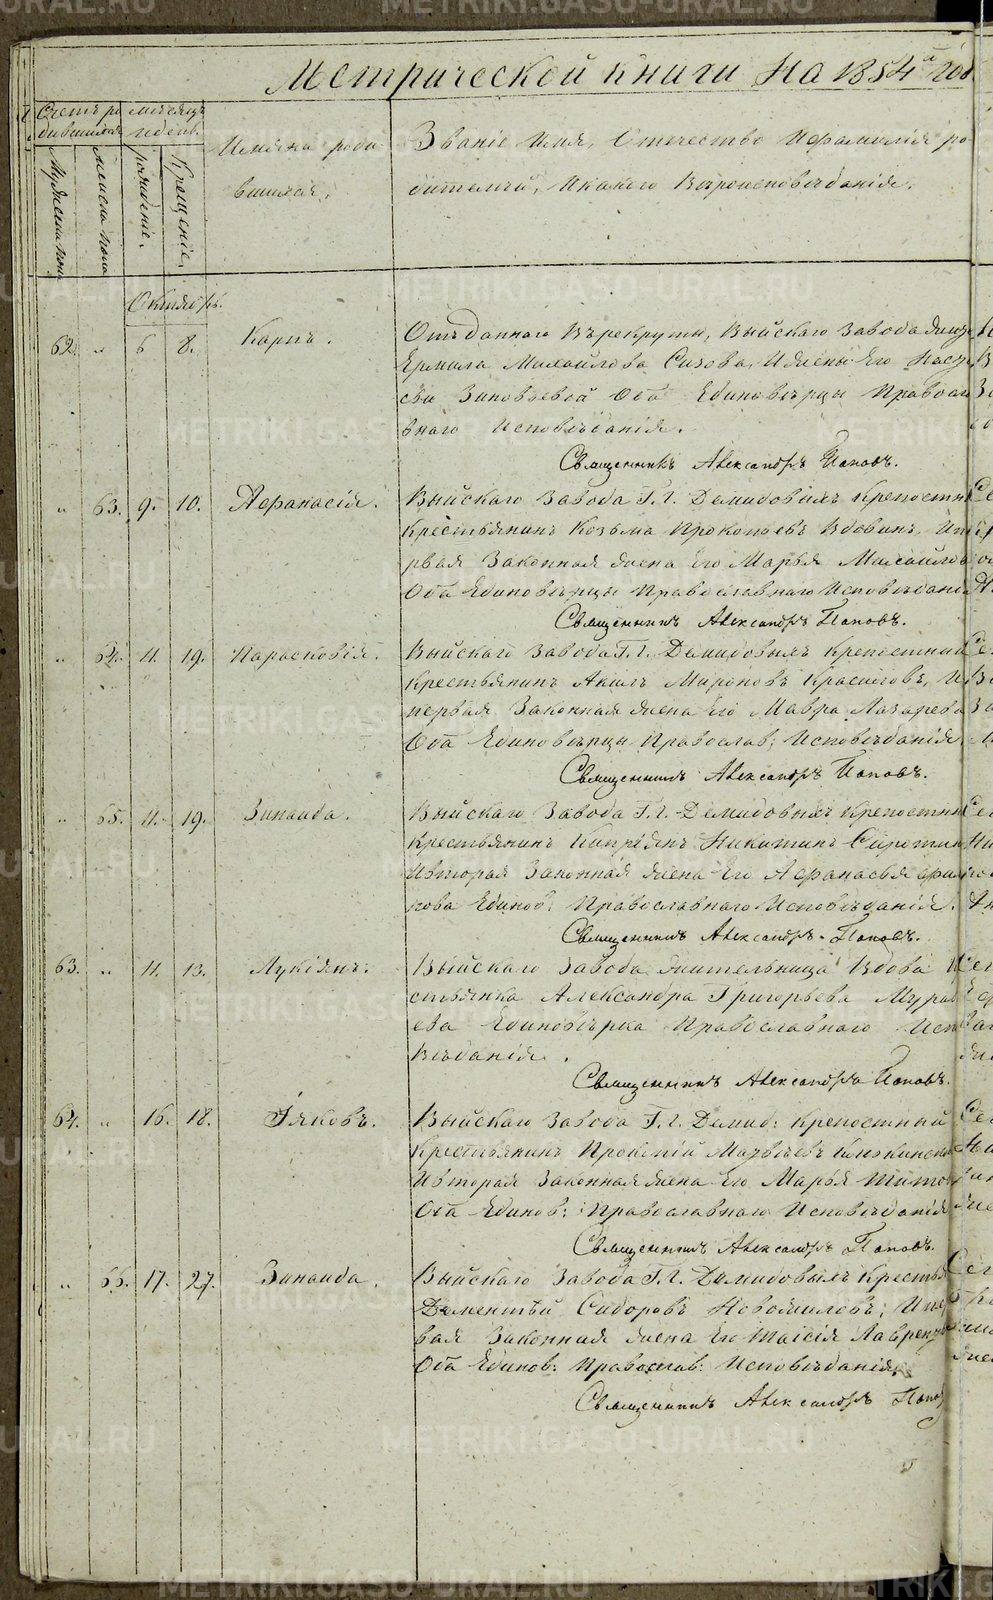 Метрической книги на 1854й год
Счетъ ро
дившихся
месяцъ
и день.
Мужеска пола
женска пола
рожденіе.
Крещеніе.
Имена роди
вшихся.
Званіе имя, Отечество и фамилія ро
дителей, и какого вѣроисповѣданія.
Октябрь.
62. „ 6 8. Карпъ.
Отъданнаго въ рекруты, Выйскаго завода
Ермила Михайлова Сизова, и жены его Наст
сьи Зиновьевой Оба Единовѣрцы Правосла
внаго Исповѣданія.
Священникъ Александръ Поповъ.
„ 63. 9. 10. Афанасія.
Выйскаго завода Г.Г. Демидовыхъ крепостн
крестьянинъ Козьма Прокопьевъ Вдовинъ, и пе
рвая законная жена его Марья Михайлов
Оба Единовѣрцы Православнаго Исповѣданія
Священникъ Александръ Поповъ.
„ 64. 11. 19. Парасковія.
Выйскаго завода Г.Г. Демидовыхъ крепостный
крестьянинъ Акилъ Мироновъ Красиловъ, и
первая законная жена его Мавра Лазарева
Оба Единовѣрцы Православ: Исповѣданія
Священникъ Александръ Поповъ.
„ 65. 11. 19. Зинаида.
Выйскаго завода Г.Г. Демидовыхъ крепостны
крестьянинъ Кипріянъ Никитинъ Сиротин
и вторая законная жена его Афанасья
Единов: Православнаго Исповѣданія.
Священникъ Александръ Поповъ.
63. „ 11. 13. Лукіянъ.
Выйскаго завода жительница вдова
стьянка Александра Григорьева Мурав
ева Единовѣрка Православнаго Испо
вѣданія.
Священникъ Александръ Поповъ.
64. „ 16. 18. Іяковъ.
Выйскаго завода Г.Г. Демид: крепостный
крестьянинъ Матвѣевъ
и вторая законная жена его Марья Титов
Оба Единов: Православнаго Исповѣданія
Священникъ Александръ Поповъ.
„ 66. 17. 27. Зинаида.
Выйскаго завода Г.Г. Демидовыхъ кресть
Дементьй Сидоровъ Новожиловъ; и пер
вая законная жена его Таисія Лаврен
Оба Единов: Православ: Исповѣданія.
Священникъ Александръ Попо